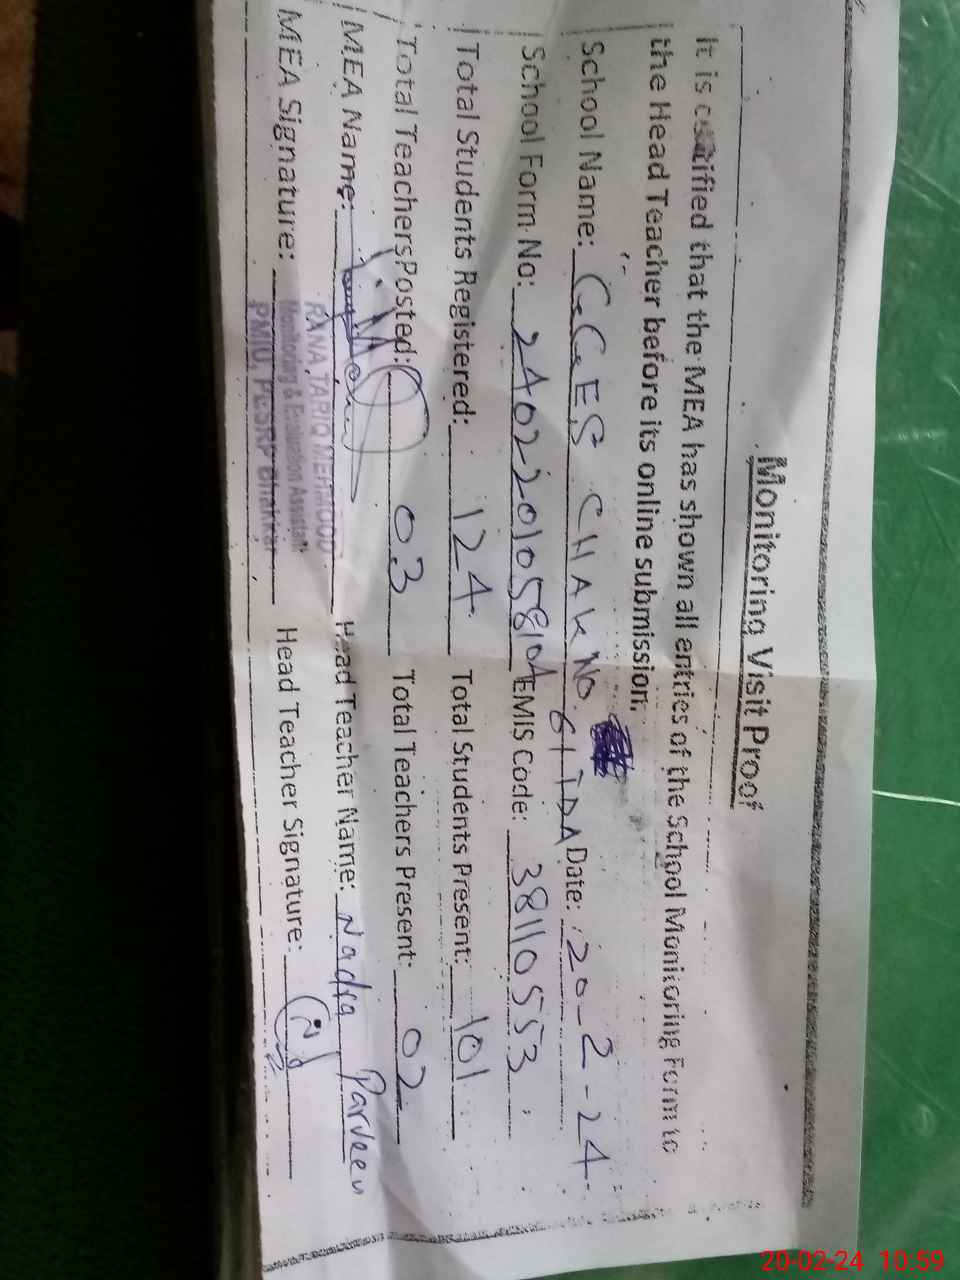 Monitoring Visit Proof
It is certified that the MEA has shown all entries of the School Monitoring Form to
the Head Teacher before its online submission.
School Name: GGES CHAK NO. 61 TDA Date: 20-2-24
School Form No: 2402201058104 EMIS Code: 38110553
Total Students Registered: 124 Total Students Present: 101
Total Teachers Posted: 03 Total Teachers Present: 02
MEA Name: Head Teacher Name: Nadia Parveen
RANA TARIQ MEHMOOD
Monitoring & Evaluation Assistant
MEA Signature: Head Teacher Signature:
PMIU, PESRP Bhakkar
20-02-24 10:59